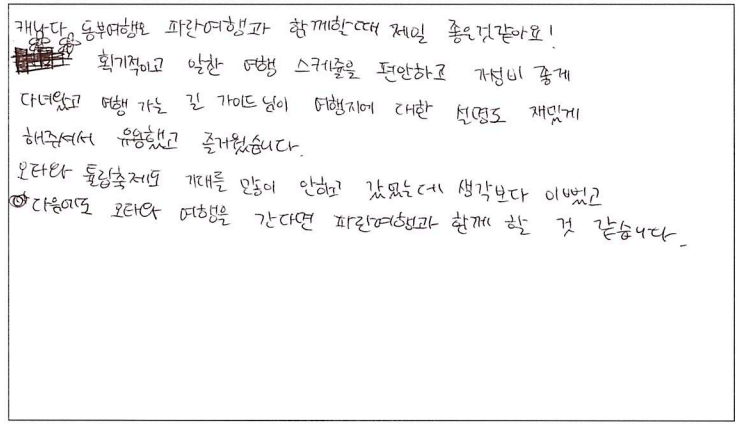 캐나다 동부여행은 파란여행과 함께할때 제일 좋은것같아요!
획기적이고 알찬 여행 스케줄을 편안하고 가성비 좋게
다녀왔고 여행 가는 길 가이드님이 여행지에 대한 설명도 재밌게
해주셔서 유용했고 즐거웠습니다.
오타와 튤립축제도 기대를 많이 안하고 갔었는데 생각보다 이뻤고
다음에도 오타와 여행을 간다면 파란여행과 함께 할 것 같습니다.